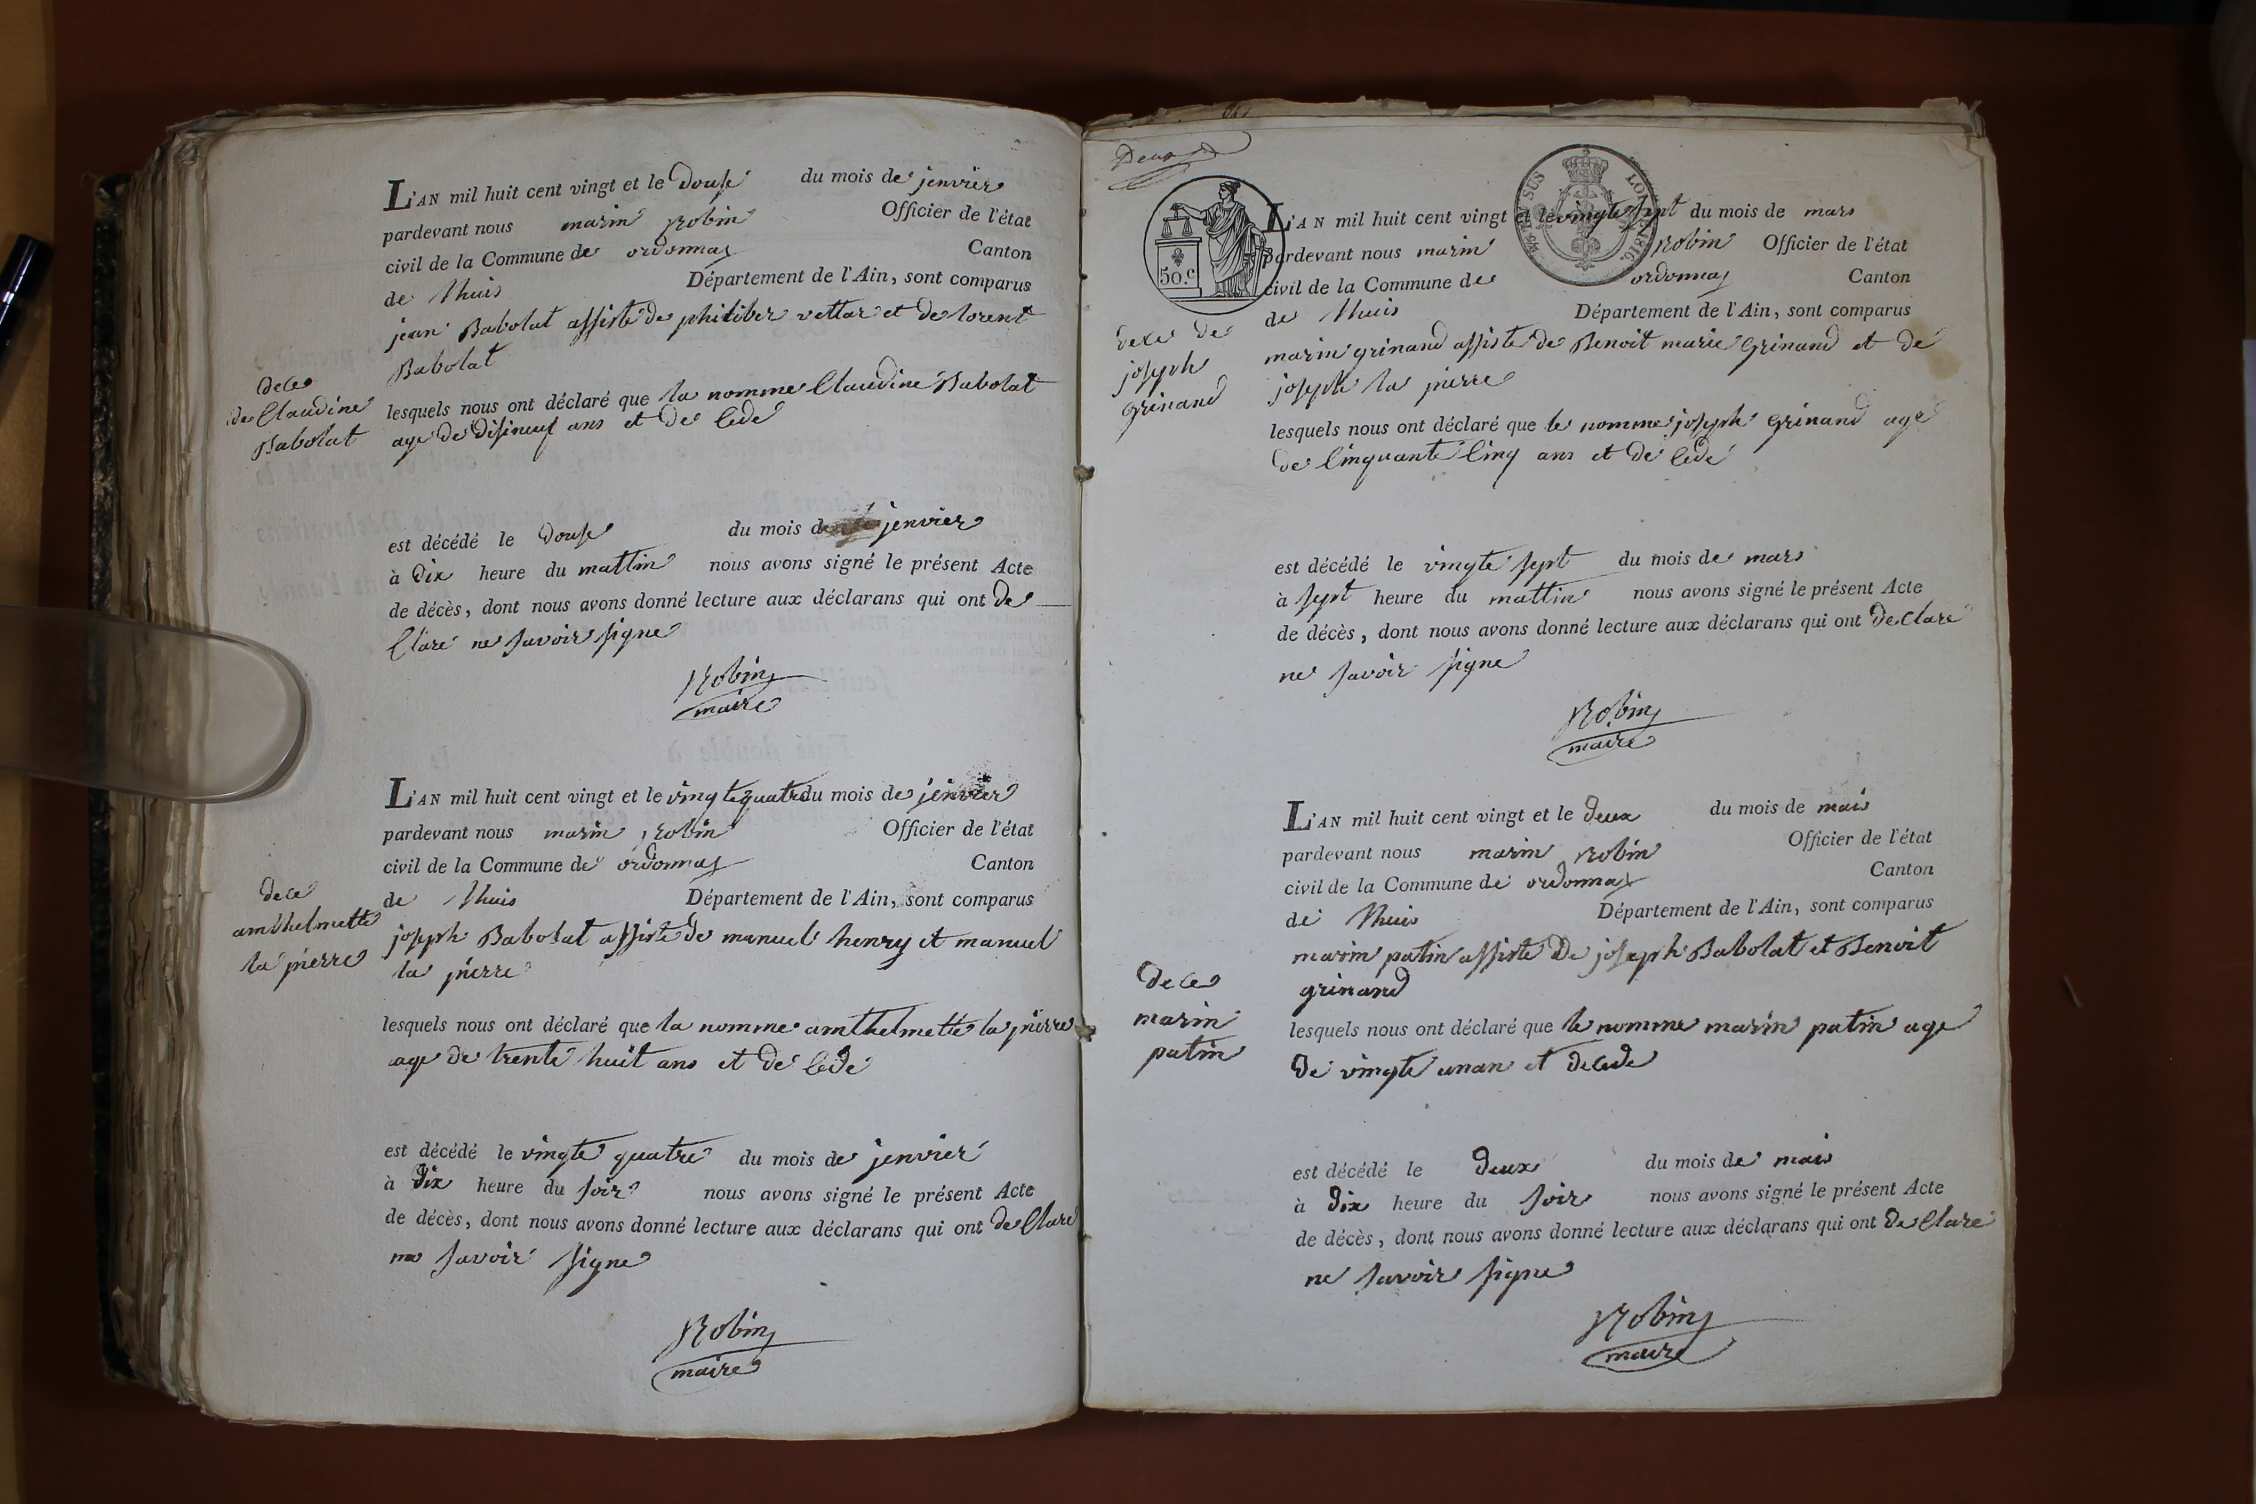 L'AN mil huit cent vingt et le douse du mois de jenvier
pardevant nous marin Robin Officier de l'état
civil de la Commune de ordonnas Canton
de Lhuis Département de l'Ain, sont comparus
jean Babolat assisté de philiber vettar et de lorent
Babolat
dece
de Claudine
Babolat
lesquels nous ont déclaré que la nomme Claudine Babolat
age de disineuf ans et de cede
est décédé le douse du mois de jenvier
à dix heure du mattin nous avons signé le présent Acte
de décès, dont nous avons donné lecture aux déclarans qui ont de
Claré ne savoir signe
Robin
maire
L'AN mil huit cent vingt et le vingte quatre du mois de jenvier
pardevant nous marin Robin Officier de l'état
civil de la Commune de ordonnas Canton
de Lhuis Département de l'Ain, sont comparus
dece
amthelmette
la pierre
joseph Babolat assisté de manuel henry et manuel
la pierre
lesquels nous ont déclaré que la nomme amthelmette la pierre
age de trente huit ans et de cede
est décédé le vingte quatre du mois de jenvier
à dix heure du soir nous avons signé le présent Acte
de décès, dont nous avons donné lecture aux déclarans qui ont de Claré
ne savoir signe
Robin
maire
Deux
50.c
SUS LOI DE 1816.
L'AN mil huit cent vingt et le vingte sept du mois de mars
pardevant nous marin Robin Officier de l'état
civil de la Commune de ordonnas Canton
de Lhuis Département de l'Ain, sont comparus
dece de
joseph
grinand
marin grinand assisté de Benoit marie Grinand et de
joseph la pierre
lesquels nous ont déclaré que le nomme joseph Grinand age
de Cinquante Cinq ans et de cede
est décédé le vingte sept du mois de mars
à sept heure du mattin nous avons signé le présent Acte
de décès, dont nous avons donné lecture aux déclarans qui ont de Claré
ne savoir signe
Robin
maire
L'AN mil huit cent vingt et le deux du mois de mais
pardevant nous marin Robin Officier de l'état
civil de la Commune de ordonnas Canton
de Lhuis Département de l'Ain, sont comparus
marin patin assiste de joseph Babolat et Benoit
grinand
dece
marin
patin
lesquels nous ont déclaré que le nomme marin patin age
de vingte unan et decede
est décédé le deux du mois de mais
à dix heure du soir nous avons signé le présent Acte
de décès, dont nous avons donné lecture aux déclarans qui ont de Claré
ne savoir signe
Robin
maire